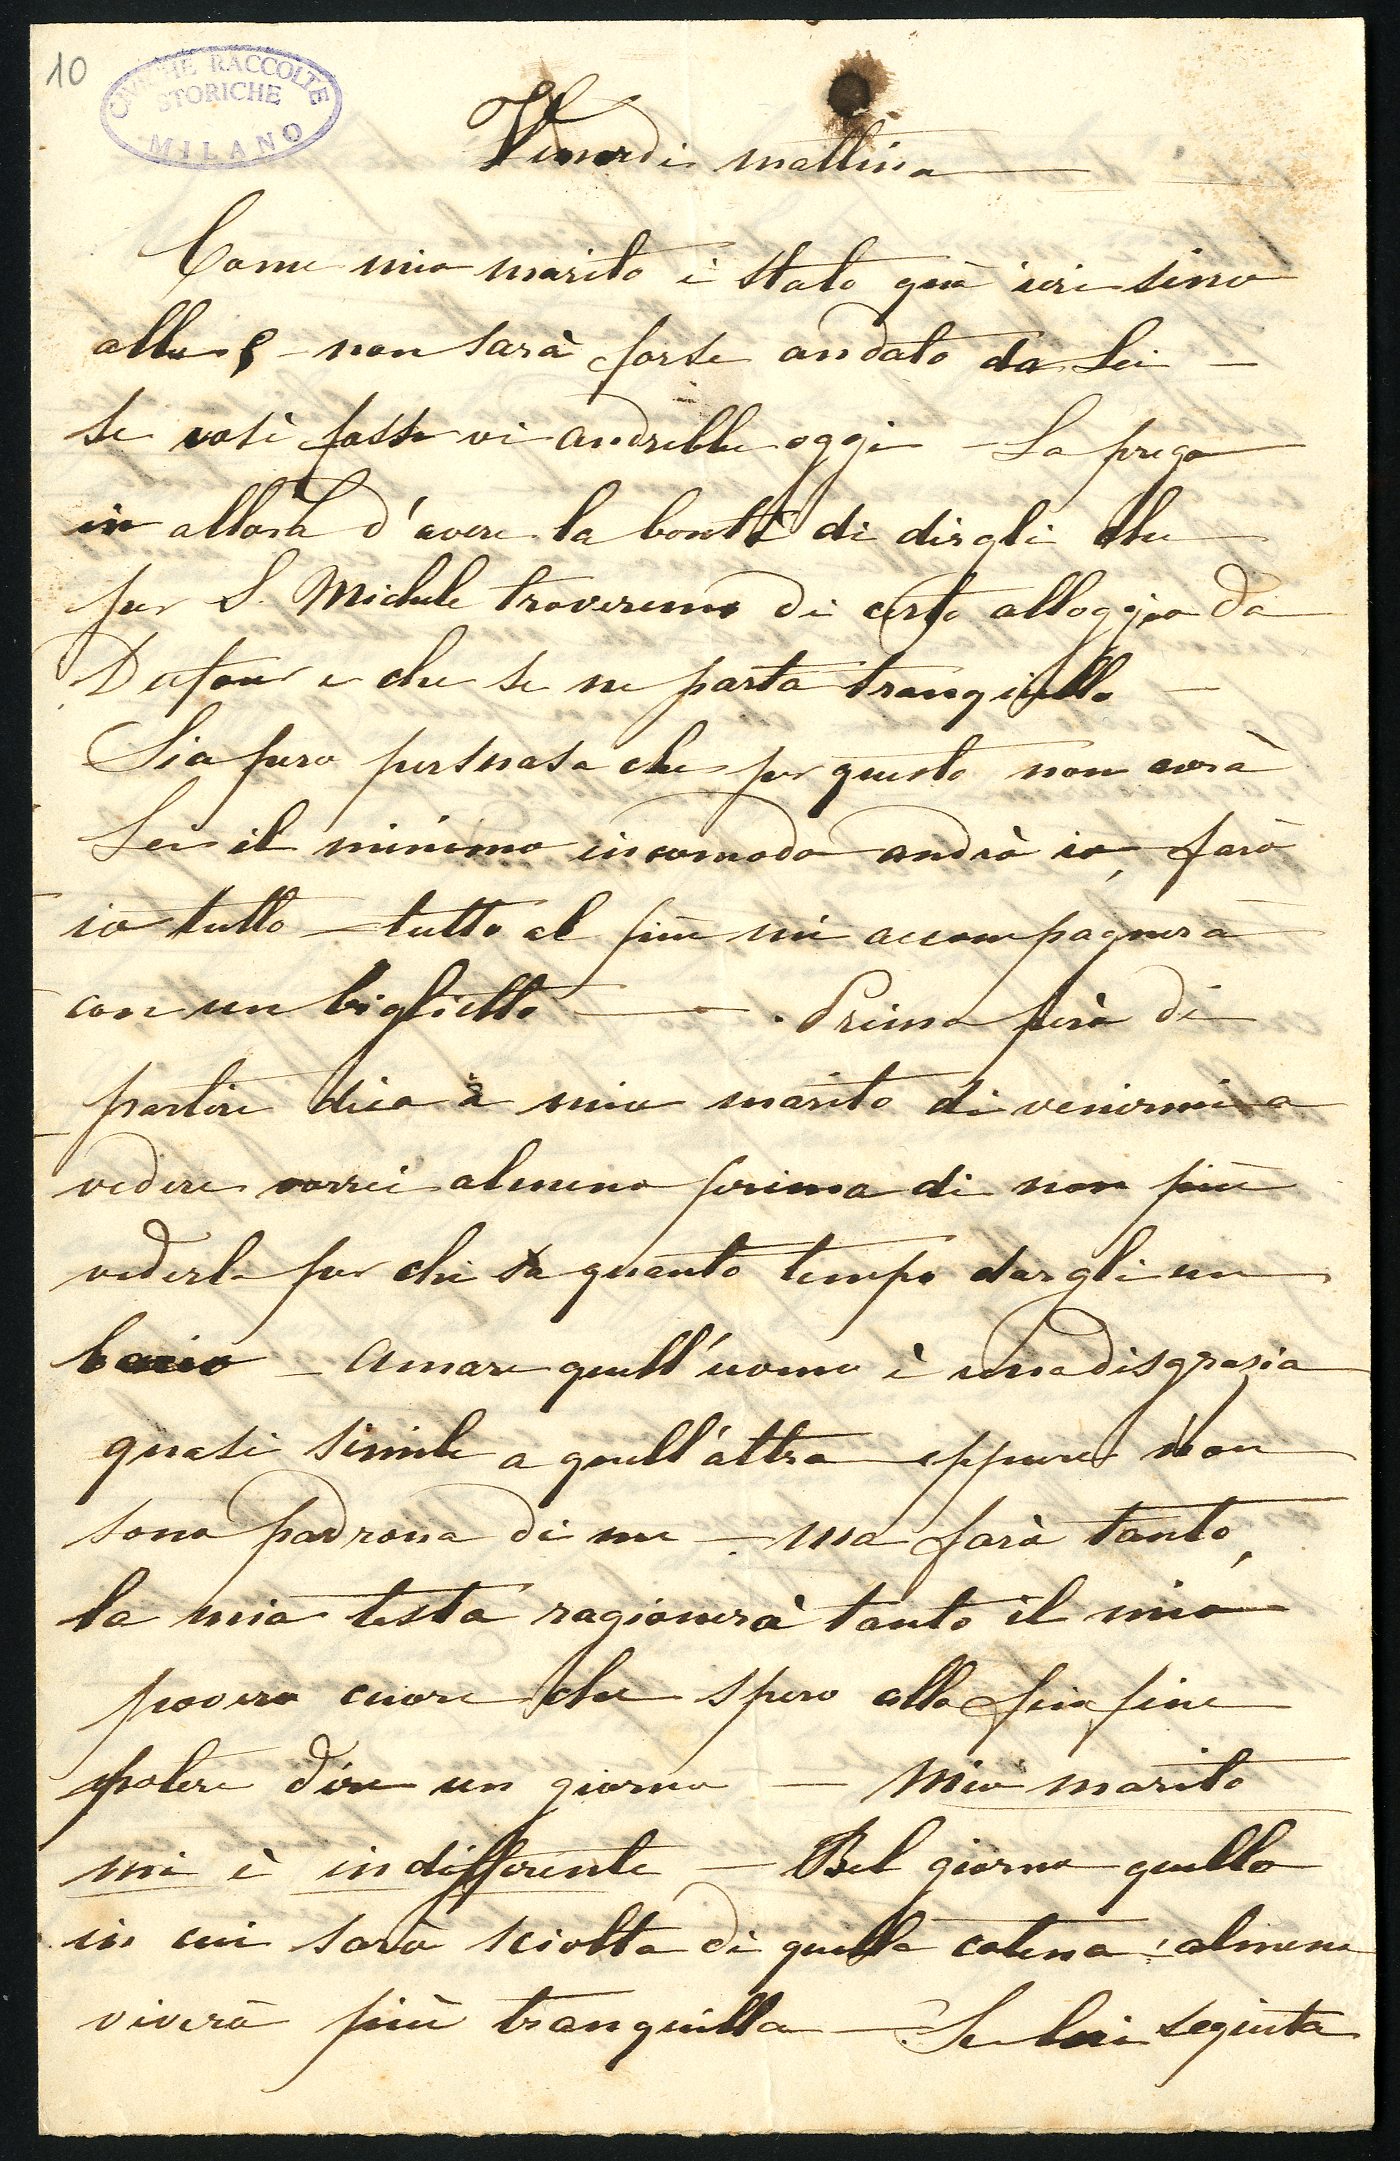 10
CIVICHE RACCOLTE
STORICHE
MILANO
Venerdi mattina
Come mio marito è stato quà ieri sino
alle 5 – non sarà forse andato da Lei –
se così fosse vi andrebbe oggi – La prego
in allora d'avere la bontà di dirgli che
per S. Michele troveremo di certo alloggio da
Dufour e che se ne parta tranquillo –
Sia pure persuasa che per questo non avrà
Lei il minimo incomodo andrò io, farò
io tutto – tutto al più mi accompagnerà
con un biglietto – Prima però di
partire dica à mio marito di venirmi a
vedere vorrei almeno prima di non più
vederlo per chi sa quanto tempo dargli un
bacio – Amare quell'uomo è una disgrazia
quasi simile a quell'altra eppure non
sono padrona di me – ma farà tanto,
la mia testa ragionerà tanto il mio
povero cuore che spero alla fin fine
potere dire un giorno – Mio marito
mi è indifferente – Bel giorno quello
in cui sarò sciolta di quella catena! almeno
viverò più tranquilla – Se lui seguita